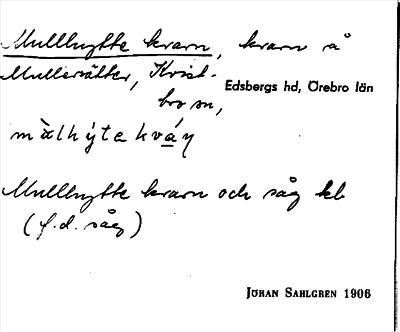 Mullhytte kvarn, kvarn å
Mullersätter, Kvist-
bro sn,
Edsbergs hd, Örebro län
màlhýtakváṇ
Mullhytte kvarn och såg kb
(f.d. såg)
JÖRAN SAHLGREN 1906